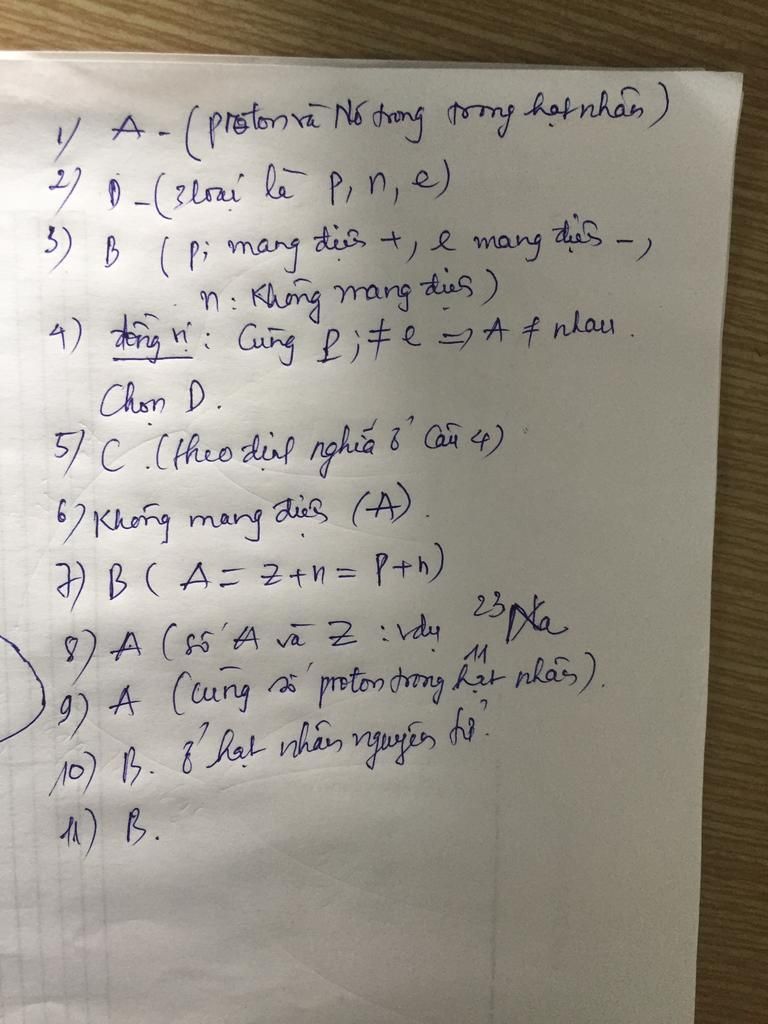 1) A - (proton và Nơtrong trong hạt nhân)
2) D - (3 loại là p, n, e)
3) B ( p; mang điện +, e mang điện -,
n: Không mang điện)
4) đồng vị: Cùng p; ≠ e => A ≠ nhau.
Chọn D.
5) C. (theo định nghĩa ở Câu 4)
6) Không mang điện (A).
7) B ( A = Z + n = p + n)
8) A (số A và Z : vdụ ²³₁₁Na
9) A (cùng số proton trong hạt nhân).
10) B. ở hạt nhân nguyên tử.
11) B.